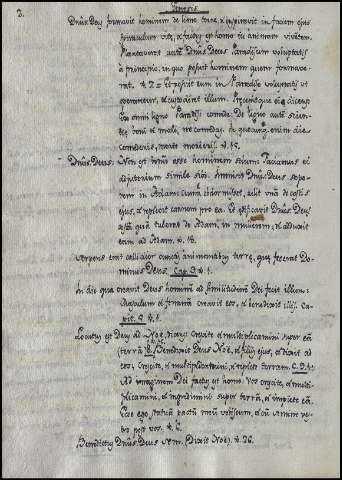 3. Genesis.
Dñus Deus formavit hominem de limo terræ, et inspiravit in faciem ejus
spiraculum vitæ, et factus est homo in animam viventem.
Plantaverat autē Dñus Deus Paradisum voluptatis
à principio, in quo posuit hominem quem formave-
rat. et posuit eum in Paradiso voluptatis ut
operaretur, et custodiret illum. Præcepitque ei dicens:
Ex omni ligno Paradisi comede. De ligno autē scien-
tiæ boni et mali, ne comedas. In quocumq. enim die
comederis, morte morieris. V. 15.
Dñus. Deus: Non est bonū esse hominem solum: Faciamus ei
adjutorium simile sibi. Immisit Dñus Deus sopo-
rem in Adam: Cumq. obdormisset, tulit unā de costis
ejus, et replevit carnem pro ea. Et ædificavit Dñus Deus
costā, quā tulerat de Adam, in mulierem: et adduxit
eam ad Adam. V. 18.
Serpens erat callidior cunctis animantibus terræ, quæ fecerat Do-
minus Deus. Cap. 3. V. 1.
In die qua creavit Deus hominē ad similitudinē Dei fecit illum.
Masculum et feminā creavit eos, et benedixit illis. Ca-
pit. 5. V. 1.
Locutus est Deus ad Noë, dicens: Crescite et multiplicamini super eā
terrā. Benedixit Deus Noë, et filijs ejus, et dixit ad
eos, Crescite, et multiplicamini, et replete terram. C. 9. V. 1.
Ad imaginem Dei factus est homo. Vos crescite, et multi-
plicamini, et ingredimini super terrā, et implete eā.
Ecce ego statuā pactū meū vobiscum, et cū semine ves-
tro post vos. V. 6.
Benedictus Dñus Deus Sem. (Dixit Noë). V. 26.